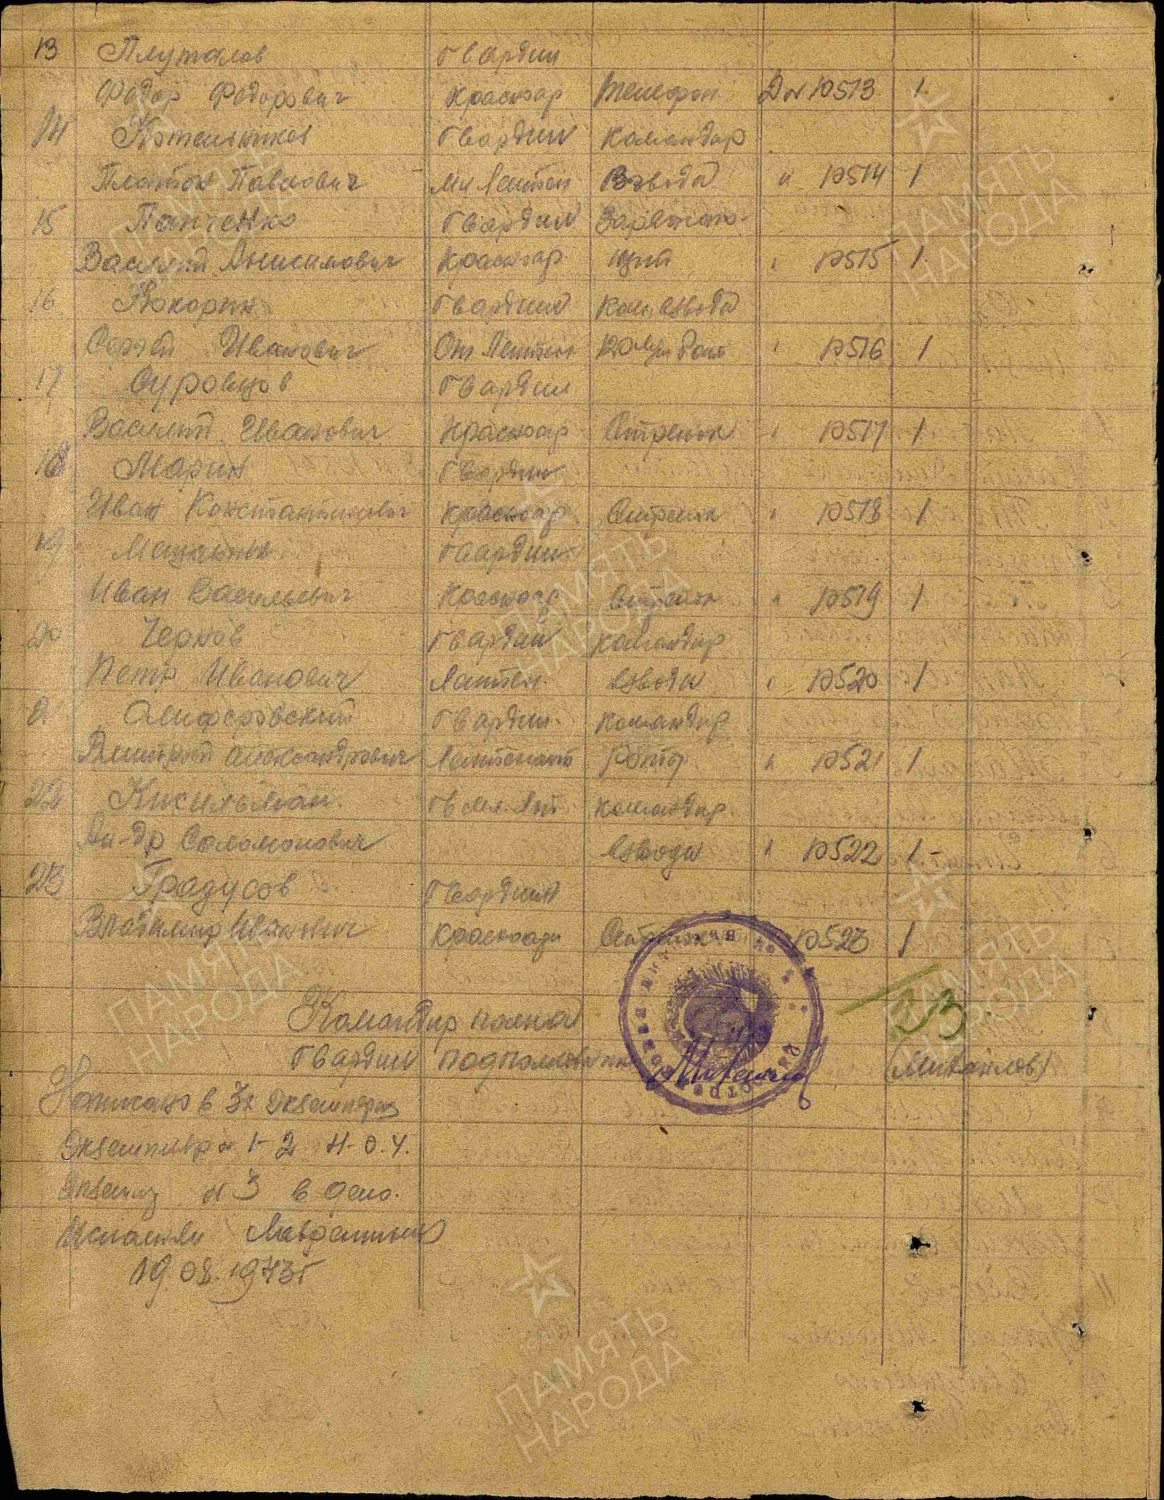 13 Плуталов Гвардии
Федор Федорович Красноар Телефон Дол 10513 1
14 Котельников Гвардии Командир
Платон Павлович Мл Лейтен Взвода " 10514 1
15 Панченко Гвардии Заряжаю-
Василий Анисимович Красноар щий " 10515 1
16 Кокорин Гвардии Ком. взвода
Сергей Иванович Ст Лейтен " 10516 1
17 Суровцов Гвардии
Василий Иванович Красноар Стрелок " 10517 1
18 Марин Гвардии
Иван Константинович Красноар Стрелок " 10518 1
19 Гвардии
Иван Васильевич Красноар Стрелок " 10519 1
20 Чернов Гвардии командир
Петр Иванович Лейтен взвода " 10520 1
21 Олиферовский Гвардии командир
Дмитрий Александрович Лейтенант Роты " 10521 1
22 Кисильман Гв мл. Лт. командир
Ал-др Соломонович взвода " 10522 1
23 Градусов Гвардии
Владимир Иванович красноар Стрелок 10523 1
23
Командир полка
Гвардии подполковник (Михайлов)
Написано в 3х экземпляр
Экземпляр № 1-2 Н.О.4.
Экземпл № 3 в дело.
19.08.1943г
ПАМЯТЬ
НАРОДА